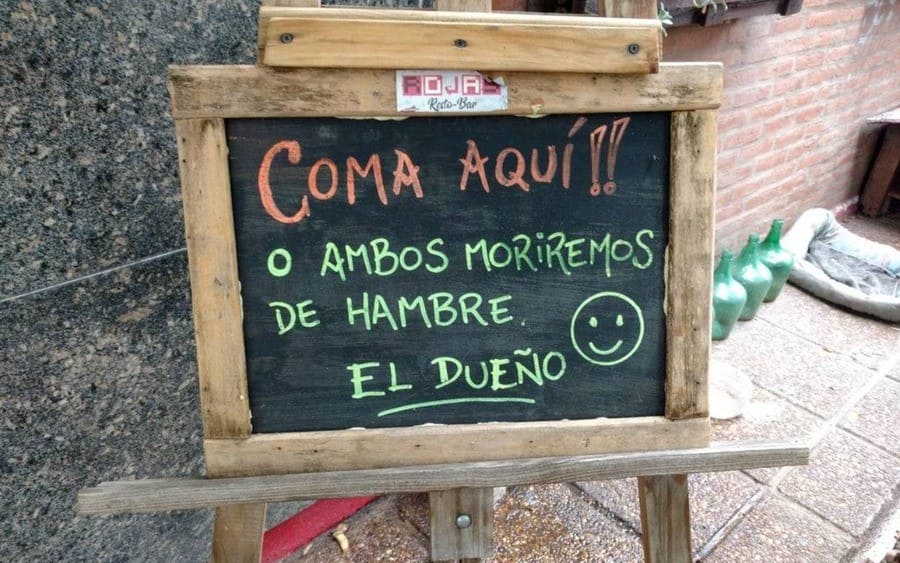 ROJAS
Resto-Bar
COMA AQUÍ!!
O AMBOS MORIREMOS
DE HAMBRE.
EL DUEÑO